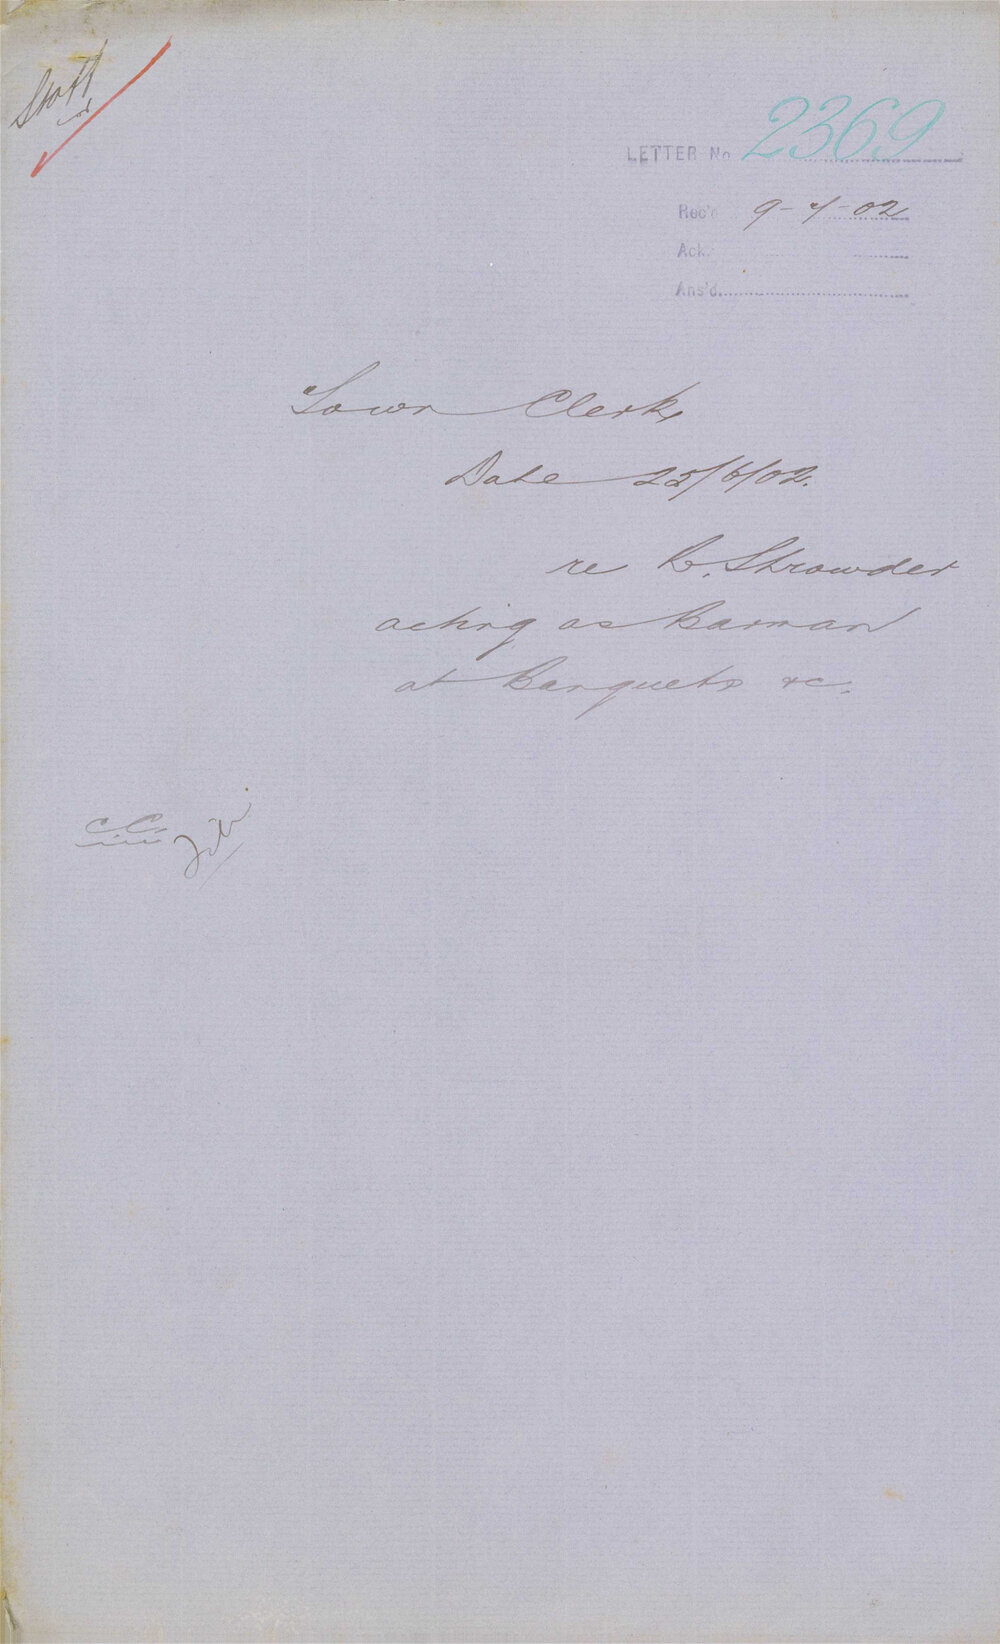 Staff
LETTER No 2369
Rec'd 9-7-02
Ack.
Ans'd.
Town Clerk,
Date 25/6/02.
re C. Shrowder
acting as Barman
at Banquets &c.
C.C.
File